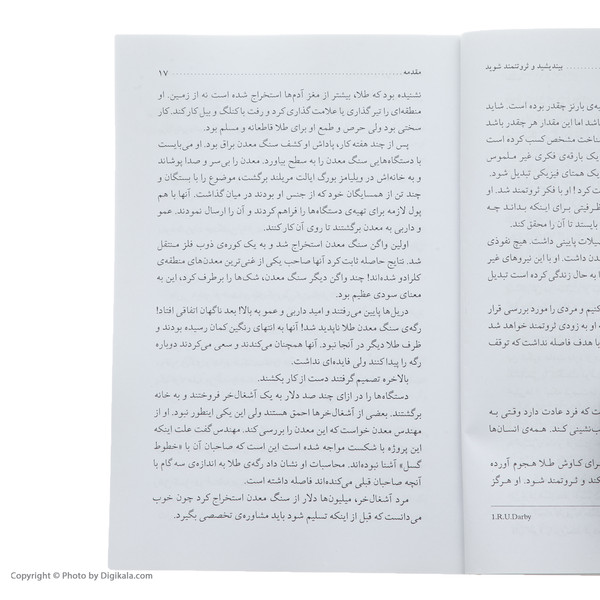 بیندیشید و ثروتمند شوید
ی بارنز چقدر بوده است. شاید
باشد اما این مقدار هر چقدر باشد
شناخت مشخص کسب کرده است
یک بارقه‌ی فکری غیر ملموس
یک همتای فیزیکی تبدیل شود.
کرد! او با فکر ثروتمند شد. او
ظرفیتی برای اینکه بداند چه
بایستد تا آن را محقق کند.
تحصیلات پایینی داشت. هیچ نفوذی
داشت. او با این نیروهای غیر
به حال زندگی کرده است تبدیل
کنیم و مردی را مورد بررسی قرار
او به زودی ثروتمند خواهد شد
با هدف فاصله نداشت که توقف
ست که فرد عادت دارد وقتی به
عقب‌نشینی کند. همه‌ی انسان‌ها
برای کاوش طلا هجوم آورده
کند و ثروتمند شود. او هرگز
1.R.U.Darby
مقدمه ۱۷
نشنیده بود که طلا، بیشتر از مغز آدم‌ها استخراج شده است نه از زمین. او
منطقه‌ای را تیرگذاری یا علامت‌گذاری کرد و رفت با کلنگ و بیل کار کند. کار
سختی بود ولی حرص و طمع او برای طلا قاطعانه و مسلم بود.
پس از چند هفته کار، پاداش او کشف سنگ معدن براق بود. او می‌بایست
با دستگاه‌هایی سنگ معدن را به سطح بیاورد. معدن را بی سر و صدا پوشاند
و به خانه‌اش در ویلیامز بورگ ایالت مریلند برگشت، موضوع را با بستگان و
چند تن از همسایگان خود که از جنس او بودند در میان گذاشت. آنها با هم
پول لازمه برای تهیه‌ی دستگاه‌ها را فراهم کردند و آن را ارسال نمودند. عمو
و داربی به معدن برگشتند تا روی آن کار کنند.
اولین واگن سنگ معدن استخراج شد و به یک کوره‌ی ذوب فلز منتقل
شد. نتایج حاصله ثابت کرد آنها صاحب یکی از غنی‌ترین معدن‌های منطقه‌ی
کلرادو شده‌اند! چند واگن دیگر سنگ معدن، شک‌ها را برطرف کرد، این به
معنای سودی عظیم بود.
دریل‌ها پایین می‌رفتند و امید داربی و عمو به بالا! بعد ناگهان اتفاقی افتاد!
رگه‌ی سنگ معدن طلا ناپدید شد! آنها به انتهای رنگین کمان رسیده بودند و
ظرف طلا دیگر در آنجا نبود. آنها همچنان می‌کندند و سعی می‌کردند دوباره
رگه را پیدا کنند ولی فایده‌ای نداشت.
بالاخره تصمیم گرفتند دست از کار بکشند.
دستگاه‌ها را در ازای چند صد دلار به یک آشغال‌خر فروختند و به خانه
برگشتند. بعضی از آشغال‌خرها احمق هستند ولی این یکی اینطور نبود. او از
مهندس معدن خواست که این معدن را بررسی کند. مهندس گفت علت اینکه
این پروژه با شکست مواجه شده است این است که صاحبان آن با «خطوط
گسل» آشنا نبوده‌اند. محاسبات او نشان داد رگه‌ی طلا به اندازه‌ی سه گام با
آنچه صاحبان قبلی می‌کنده‌اند فاصله داشته است.
مرد آشغال‌خر، میلیون‌ها دلار از سنگ معدن استخراج کرد چون خوب
می‌دانست که قبل از اینکه تسلیم شود باید مشاوره‌ی تخصصی بگیرد.
Copyright © Photo by Digikala.com